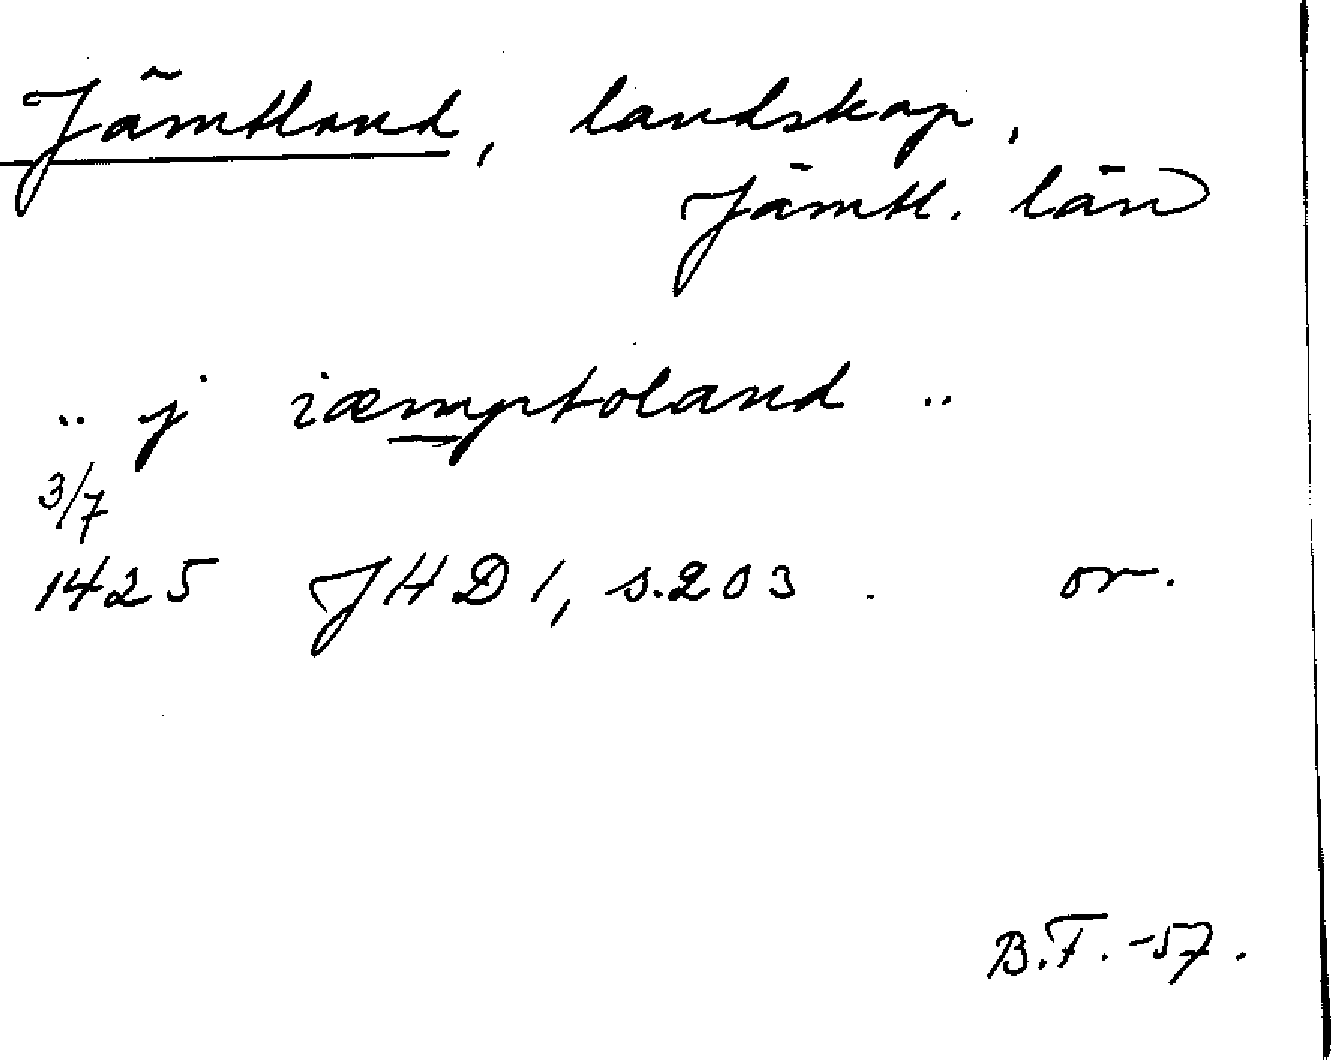 Jämtland, landskap,
Jämtl. län
.. j iæmptoland ..
3/7
1425 JHD 1, s.203. or.
B.F. -57.